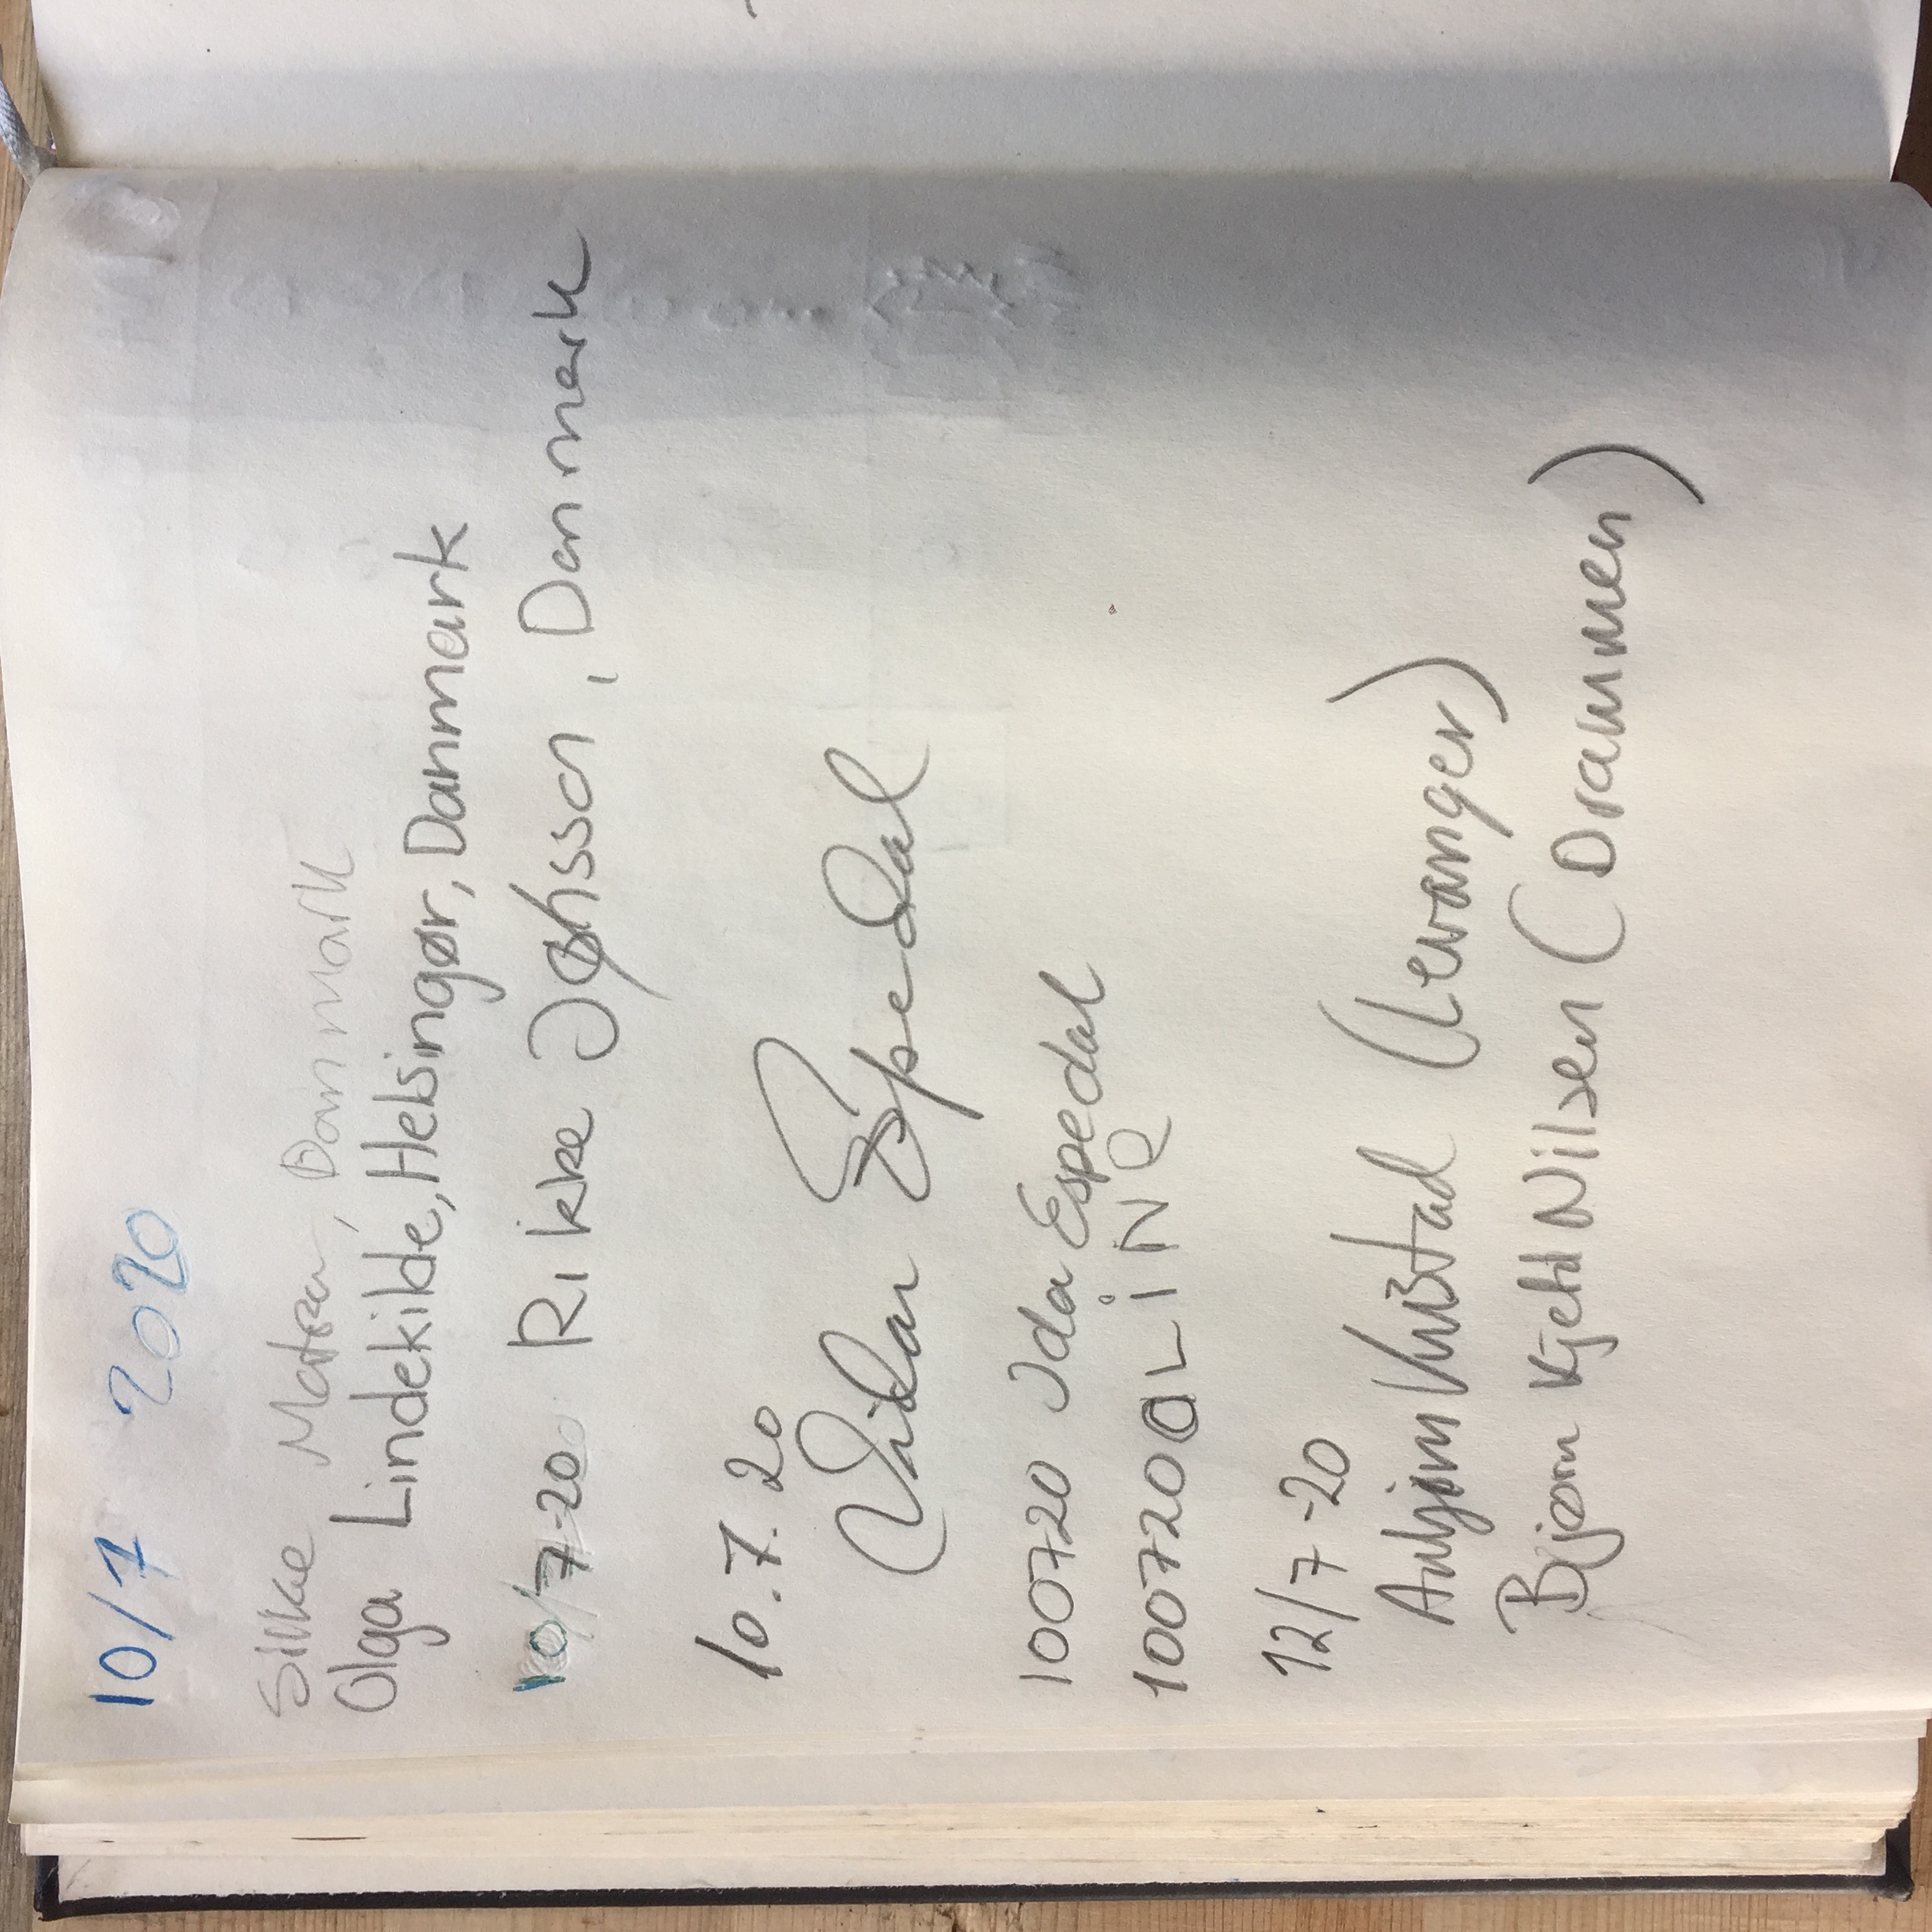 10/7 2020
Silke Matsen, Danmark
Olga Lindekilde, Helsingør, Danmark
10/7-20 Rikke, Danmark
10.7.20
Vidar Espedal
100720 Ida Espedal
100720 OLiNQ
12/7-20
(Levanger)
Bjørn Kjetil Nilsen (Drammen)